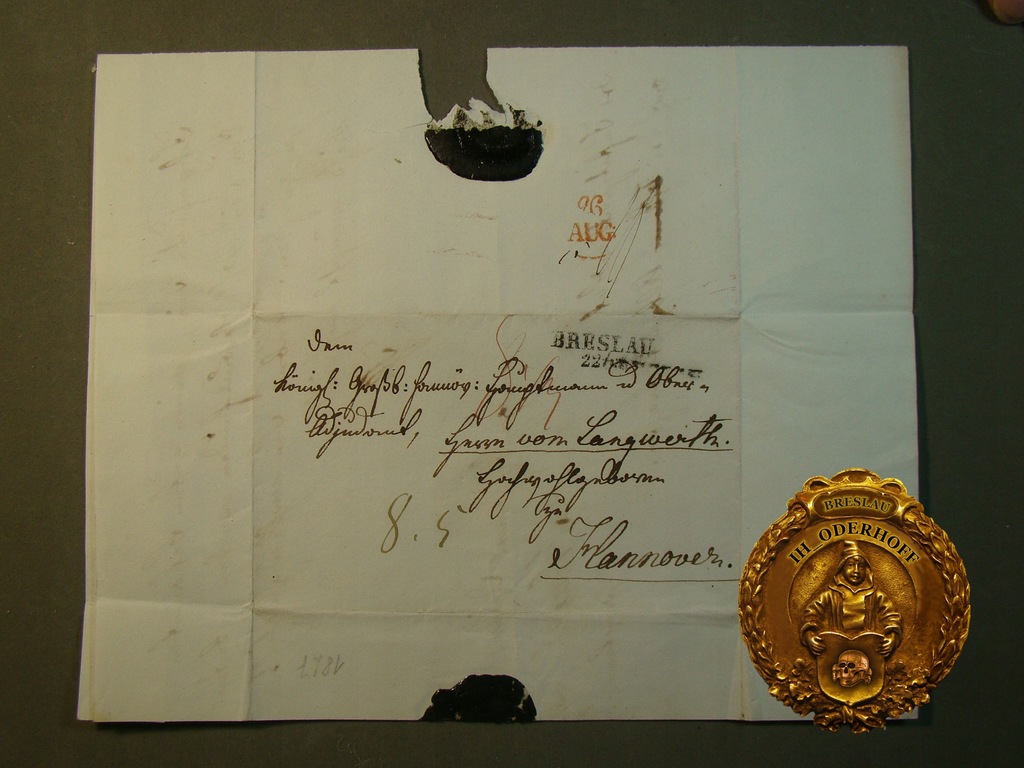 26
AUG
BRESLAU
22
Dem
Königl: Großb: hannöv: Hauptmann u Ober-
Adjudant, Herrn vom Langwerth.
Hochwohlgeboren
zu
Hannover.
8. 5
BRESLAU
IH_ODERHOFF